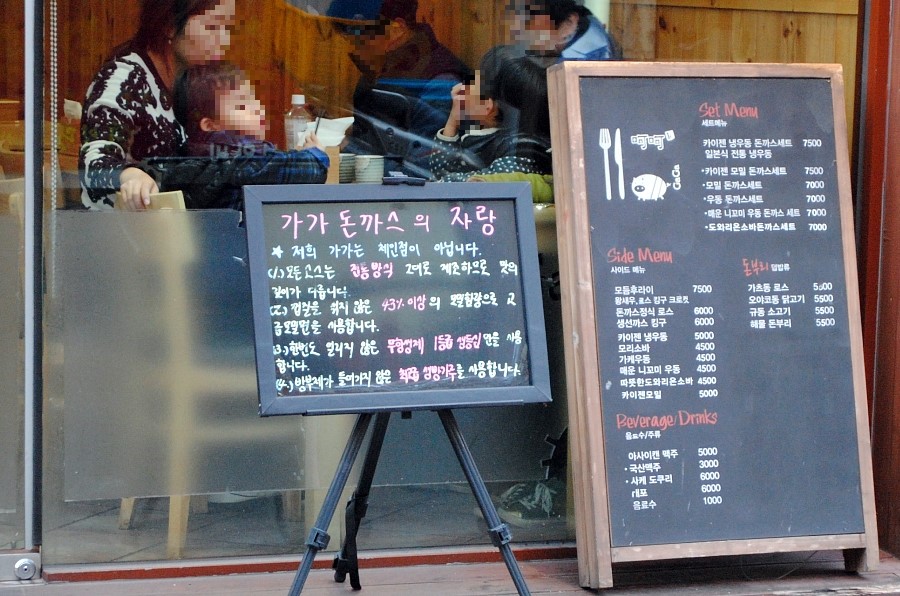 가가 돈까스의 자랑
* 저희 가가는 체인점이 아닙니다.
(1.) 모든 소스는 전통방식 그대로 제조하므로 맛의
깊이가 다릅니다.
(2.) 껍질을 하지 않은 43% 이상의 모밀함량으로 고
급모밀면을 사용합니다.
(3.) 한번도 얼리지 않은 무항생제 1등급 생등심만을 사용
합니다.
(4.) 방부제가 들어가지 않은 최고급 식용기름를 사용합니다.
Set Menu
세트메뉴
카이젠 냉우동 돈까스세트 7500
일본식 전통 냉우동
•카이젠 모밀 돈까스세트 7500
•모밀 돈까스세트 7000
•우동 돈까스세트 7000
•매운 니꼬미 우동 돈까스 세트 7000
•도와리온소바돈까스세트 7000
GaGa
Side Menu
사이드 메뉴
모듬후라이 7500
왕새우,로스 킹구 크로켓
돈까스정식 로스 6000
생선까스 킹구 6000
카이젠 냉우동 5000
모리소바 4500
가케우동 4500
매운 니꼬미 우동 4500
따뜻한도와리온소바 4500
카이젠모밀 5000
돈부리 덮밥류
가츠동 로스 5500
오야코동 닭고기 5500
규동 소고기 5500
해물 돈부리 5500
Beverage/Drinks
음료수/주류
아사이캔 맥주 5000
•국산맥주 3000
•사케 도쿠리 6000
대포 6000
음료수 1000